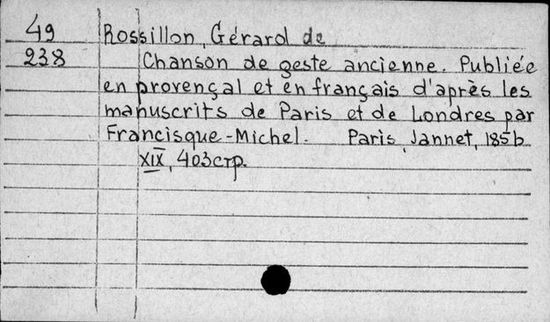 49
238
Rossillon, Gérard de
Chanson de geste ancienne. Publiée
en provençal et en français d'après les
manuscrits de Paris et de Londres par
Francisque-Michel. Paris, Jannet, 1856
XIX, 403стр.